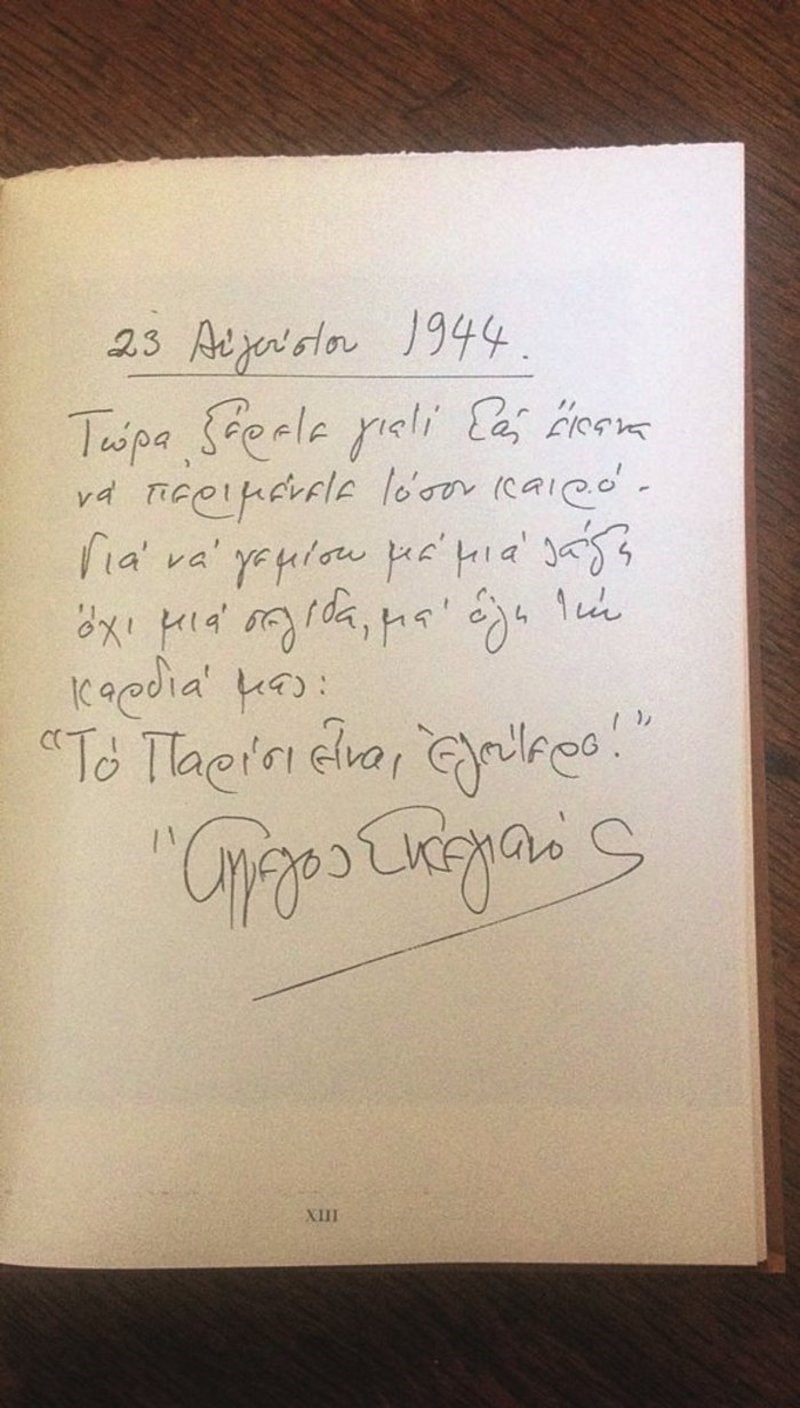 23 Αὐγούστου 1944.
Τώρα ξέρετε γιατί Σᾶς ἔκανα
νά περιμένετε τόσον καιρό -
Γιά νά γεμίσω μέ μιά λέξη
ὄχι μιά σελίδα, μά ὅλη τήν
καρδιά μας:
"Τό Παρίσι εἶναι ἐλεύτερο!"
Ἄγγελος Σικελιανός
XIII